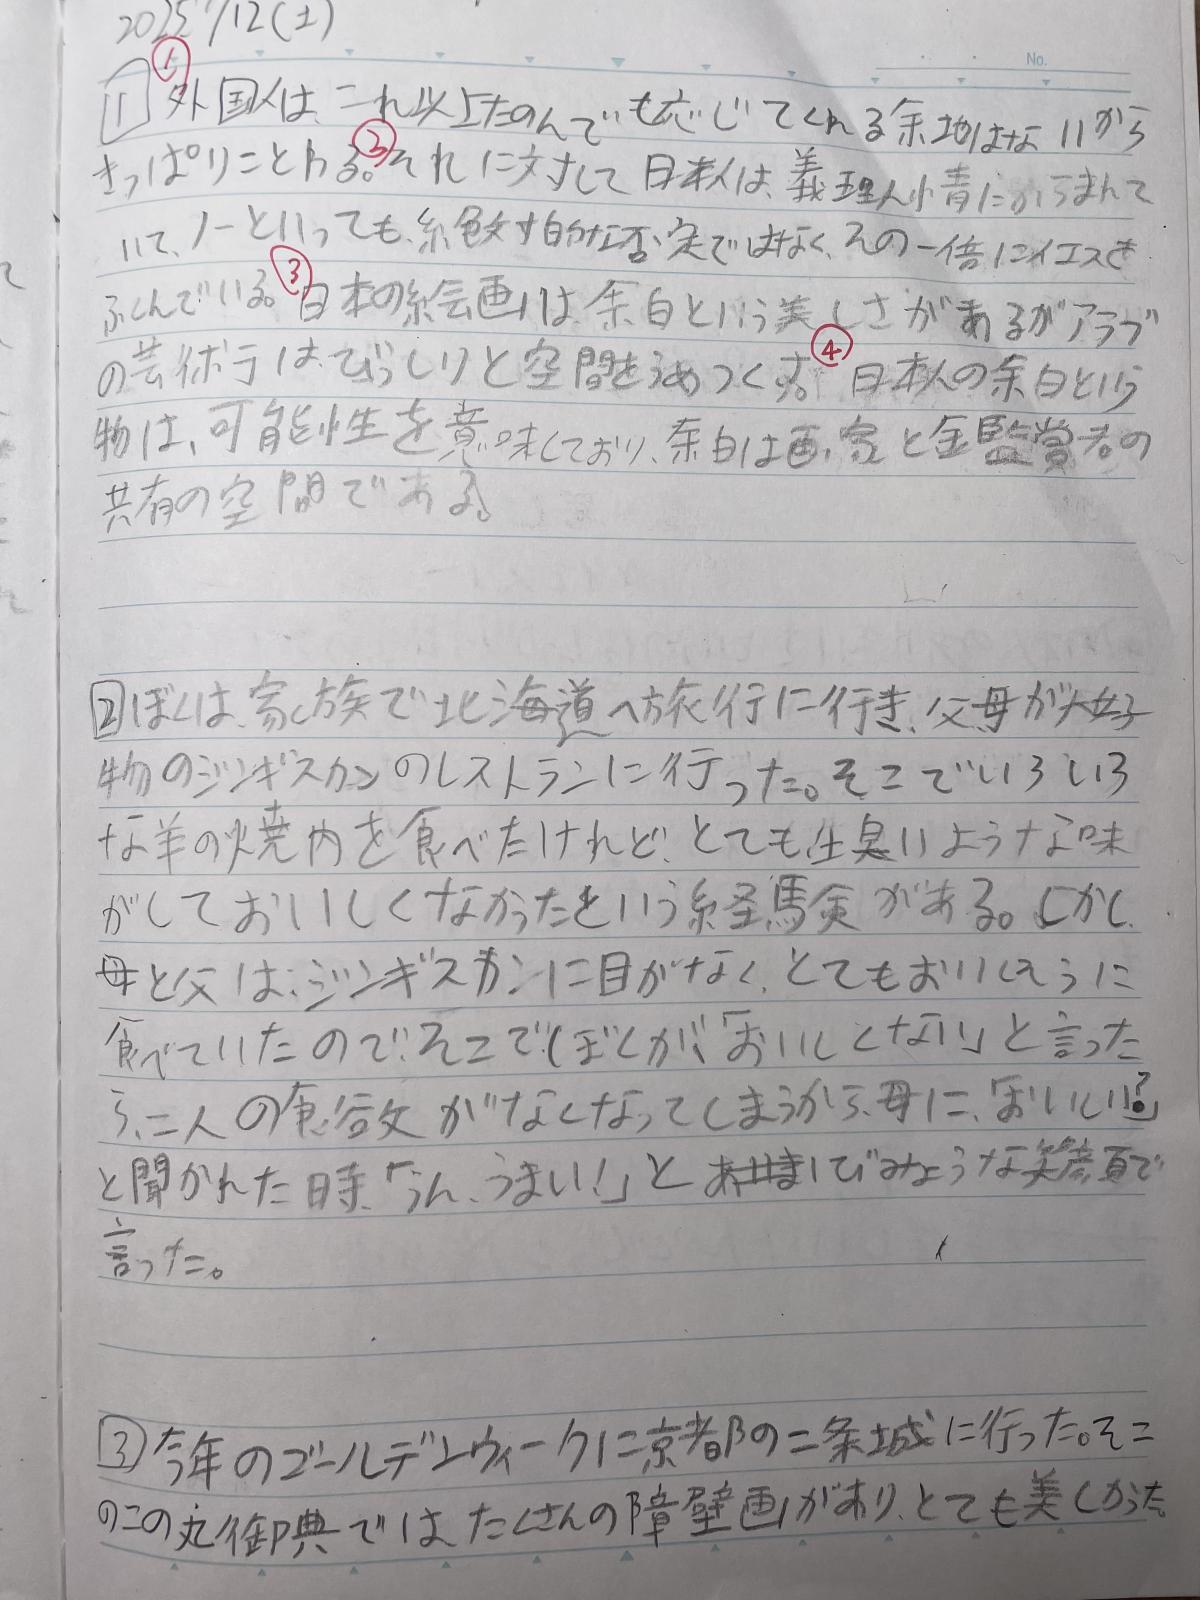 2025 7/12(土)
No.
①
1 外国人は、これ以上たのんでも応じてくれる余地はないから
きっぱりことわる。②それに対して日本人は、義理人情にからまれて
いて、ノーといっても、絶対的な否定ではなく、その一倍にイエスを
ふくんでいる。③日本の絵画には余白という美しさがあるがアラブ
の芸術テはびっしりと空間をうめつくす。④日本人の余白という
物は、可能性を意味しており、余白は画家と金監賞者の
共有の空間である。
2 ぼくは、家族で北海道へ旅行に行き、父母が大好
物のジンギスカンのレストランに行った。そこでいろいろ
な羊の焼肉を食べたけれど、とても生臭いような味
がしておいしくなかったという経験がある。しかし、
母と父は、ジンギスカンに目がなく、とてもおいしそうに
食べていたので、そこでぼくが、「おいしくない」と言った
ら、二人の食欲がなくなってしまうから、母に、「おいしい?」
と聞かれた時、「うん、うまい!」と あせまじびみょうな笑顔で
言った。
3 今年のゴールデンウィークに京都の二条城に行った。そこ
のこの丸御典ではたくさんの障壁画があり、とても美しかった。